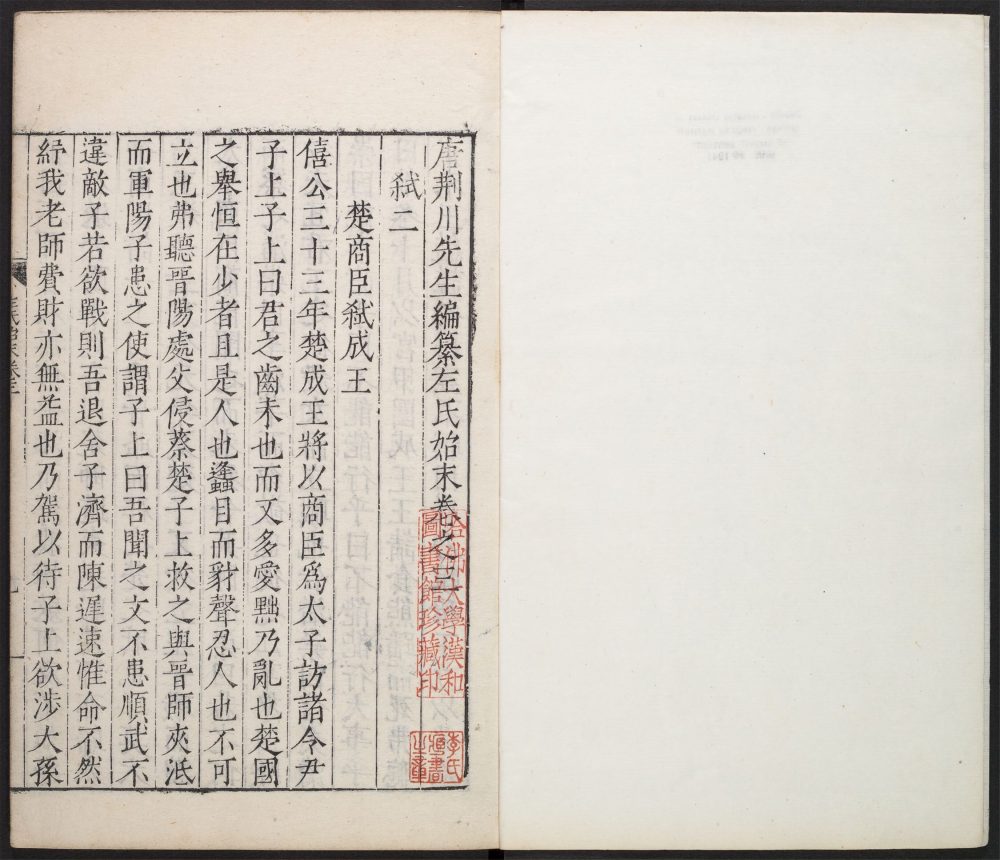 唐荆川先生編纂左氏始末卷之二
弑二
楚商臣弑成王
僖公三十三年楚成王將以商臣爲太子訪諸令尹
子上子上曰君之齒未也而又多愛黜乃亂也楚國
之舉恒在少者且是人也蠭目而豺聲忍人也不可
立也弗聽晉陽處父侵蔡楚子上救之與晉師夾泜
而軍陽子患之使謂子上曰吾聞之文不患順武不
違敵子若欲戰則吾退舍子濟而陳遲速惟命不然
紓我老師費財亦無益也乃駕以待子上欲涉大孫
哈佛大學漢和
圖書館珍藏印
李氏
藏書
之章